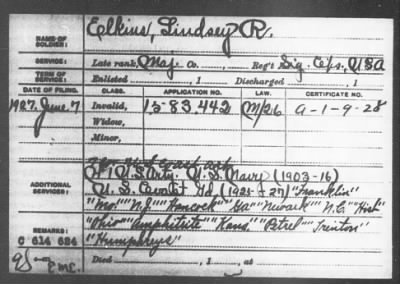 NAME OF SOLDIER: Elkins, Lindsey R.
SERVICE: Late rank, Maj. Co. , Reg't Sig. Corps, USA
TERM OF SERVICE: Enlisted , 1 Discharged , 1
DATE OF FILING. CLASS. APPLICATION NO. LAW. CERTIFICATE NO.
1927, June 7 Invalid, 1583,442 M/26 A-1-9-28
Widow,
Minor,
ADDITIONAL SERVICES: U.S. Navy (1903-16)
U.S. (1925-27) "Franklin"
"Mo." "N.J." "Hancock" "Ga" "Newark" "N.C."
"Ohio" "Amphitrite" "Kans." "Petrel" "Trenton"
REMARKS: "Humphreys"
C 614 684
Died , 1 , at